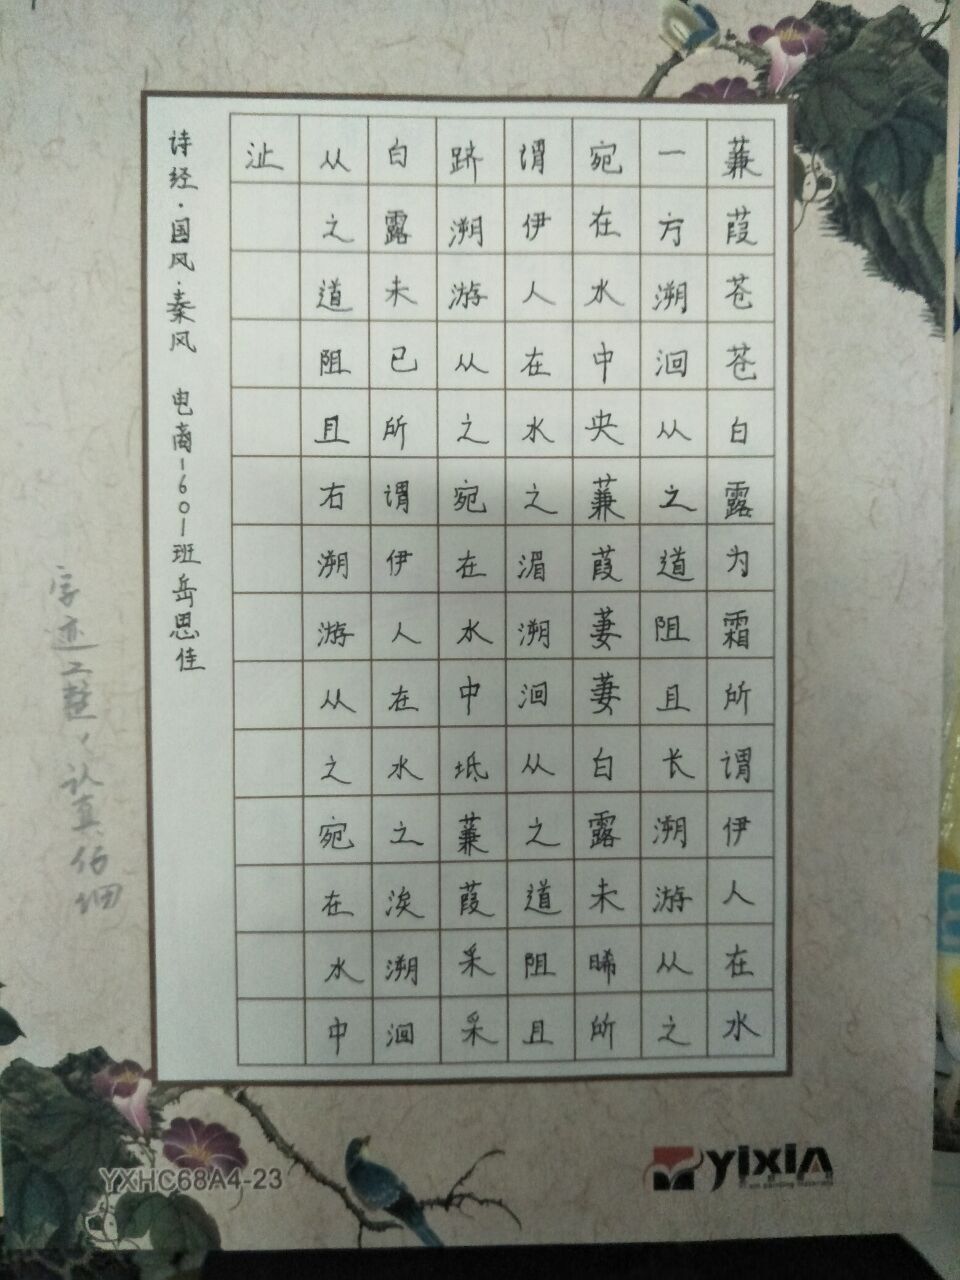 蒹葭苍苍白露为霜所谓伊人在水
一方溯洄从之道阻且长溯游从之
宛在水中央蒹葭萋萋白露未晞所
谓伊人在水之湄溯洄从之道阻且
跻溯游从之宛在水中坻蒹葭采采
白露未已所谓伊人在水之涘溯洄
从之道阻且右溯游从之宛在水中
沚
诗经·国风·秦风 电商1601班岳思佳
字迹工整、认真仔细
YXHC68A4-23
yixin